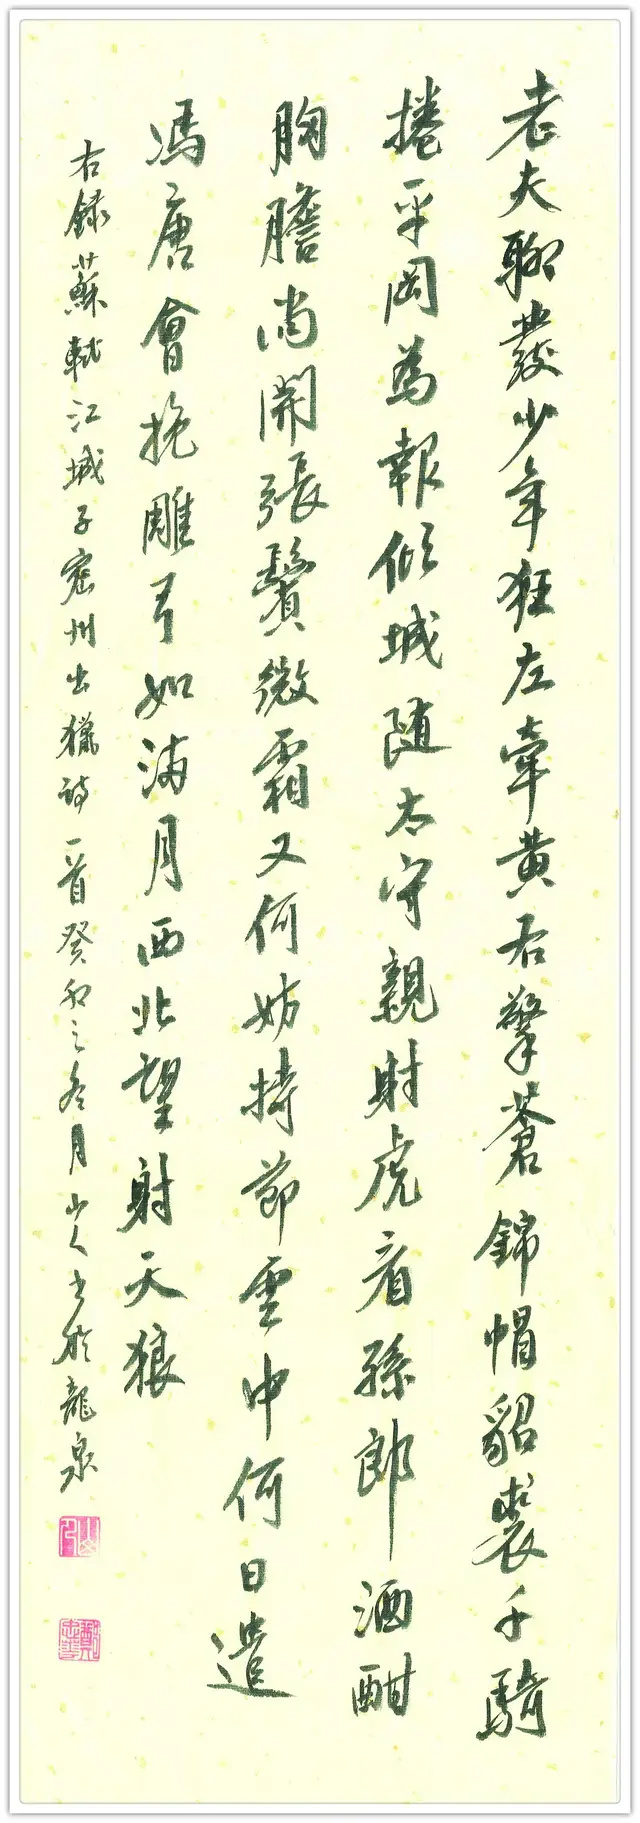 老夫聊發少年狂左牽黃右擎蒼錦帽貂裘千騎
捲平岡為報傾城隨太守親射虎看孫郎酒酣
胸膽尚開張鬢微霜又何妨持節雲中何日遣
馮唐會挽雕弓如滿月西北望射天狼
右錄蘇軾江城子密州出獵詩一首癸卯之冬月山人書於龍泉